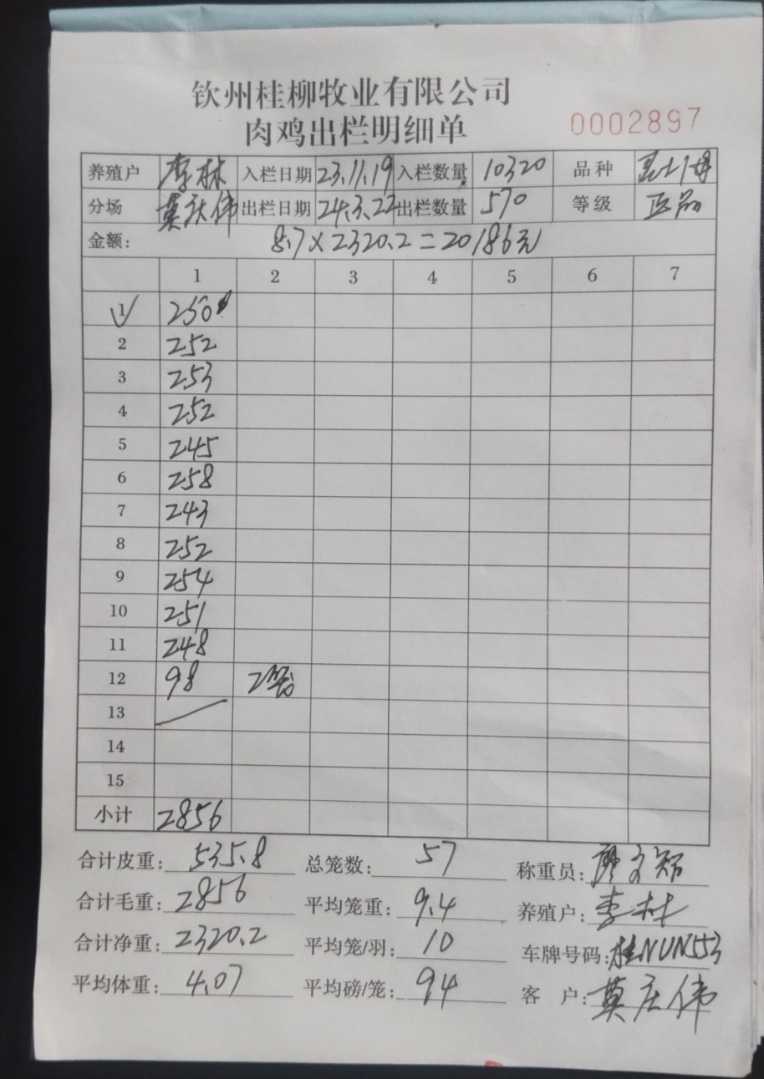 钦州桂柳牧业有限公司
肉鸡出栏明细单 0002897
养殖户 李林 入栏日期 23.11.19 入栏数量 10320 品种
分场 莫庆伟 出栏日期 24.3.22 出栏数量 570 等级 正品
金额: 8.7×2320.2=20186元
1 2 3 4 5 6 7
1 250
2 252
3 253
4 252
5 245
6 258
7 243
8 252
9 254
10 251
11 248
12 98 2笼
13
14
15
小计 2856
合计皮重: 535.8 总笼数: 57 称重员: 廖文
合计毛重: 2856 平均笼重: 9.4 养殖户: 李林
合计净重: 2320.2 平均笼/羽: 10 车牌号码: 桂NUN553
平均体重: 4.07 平均磅/笼: 94 客 户: 莫庆伟